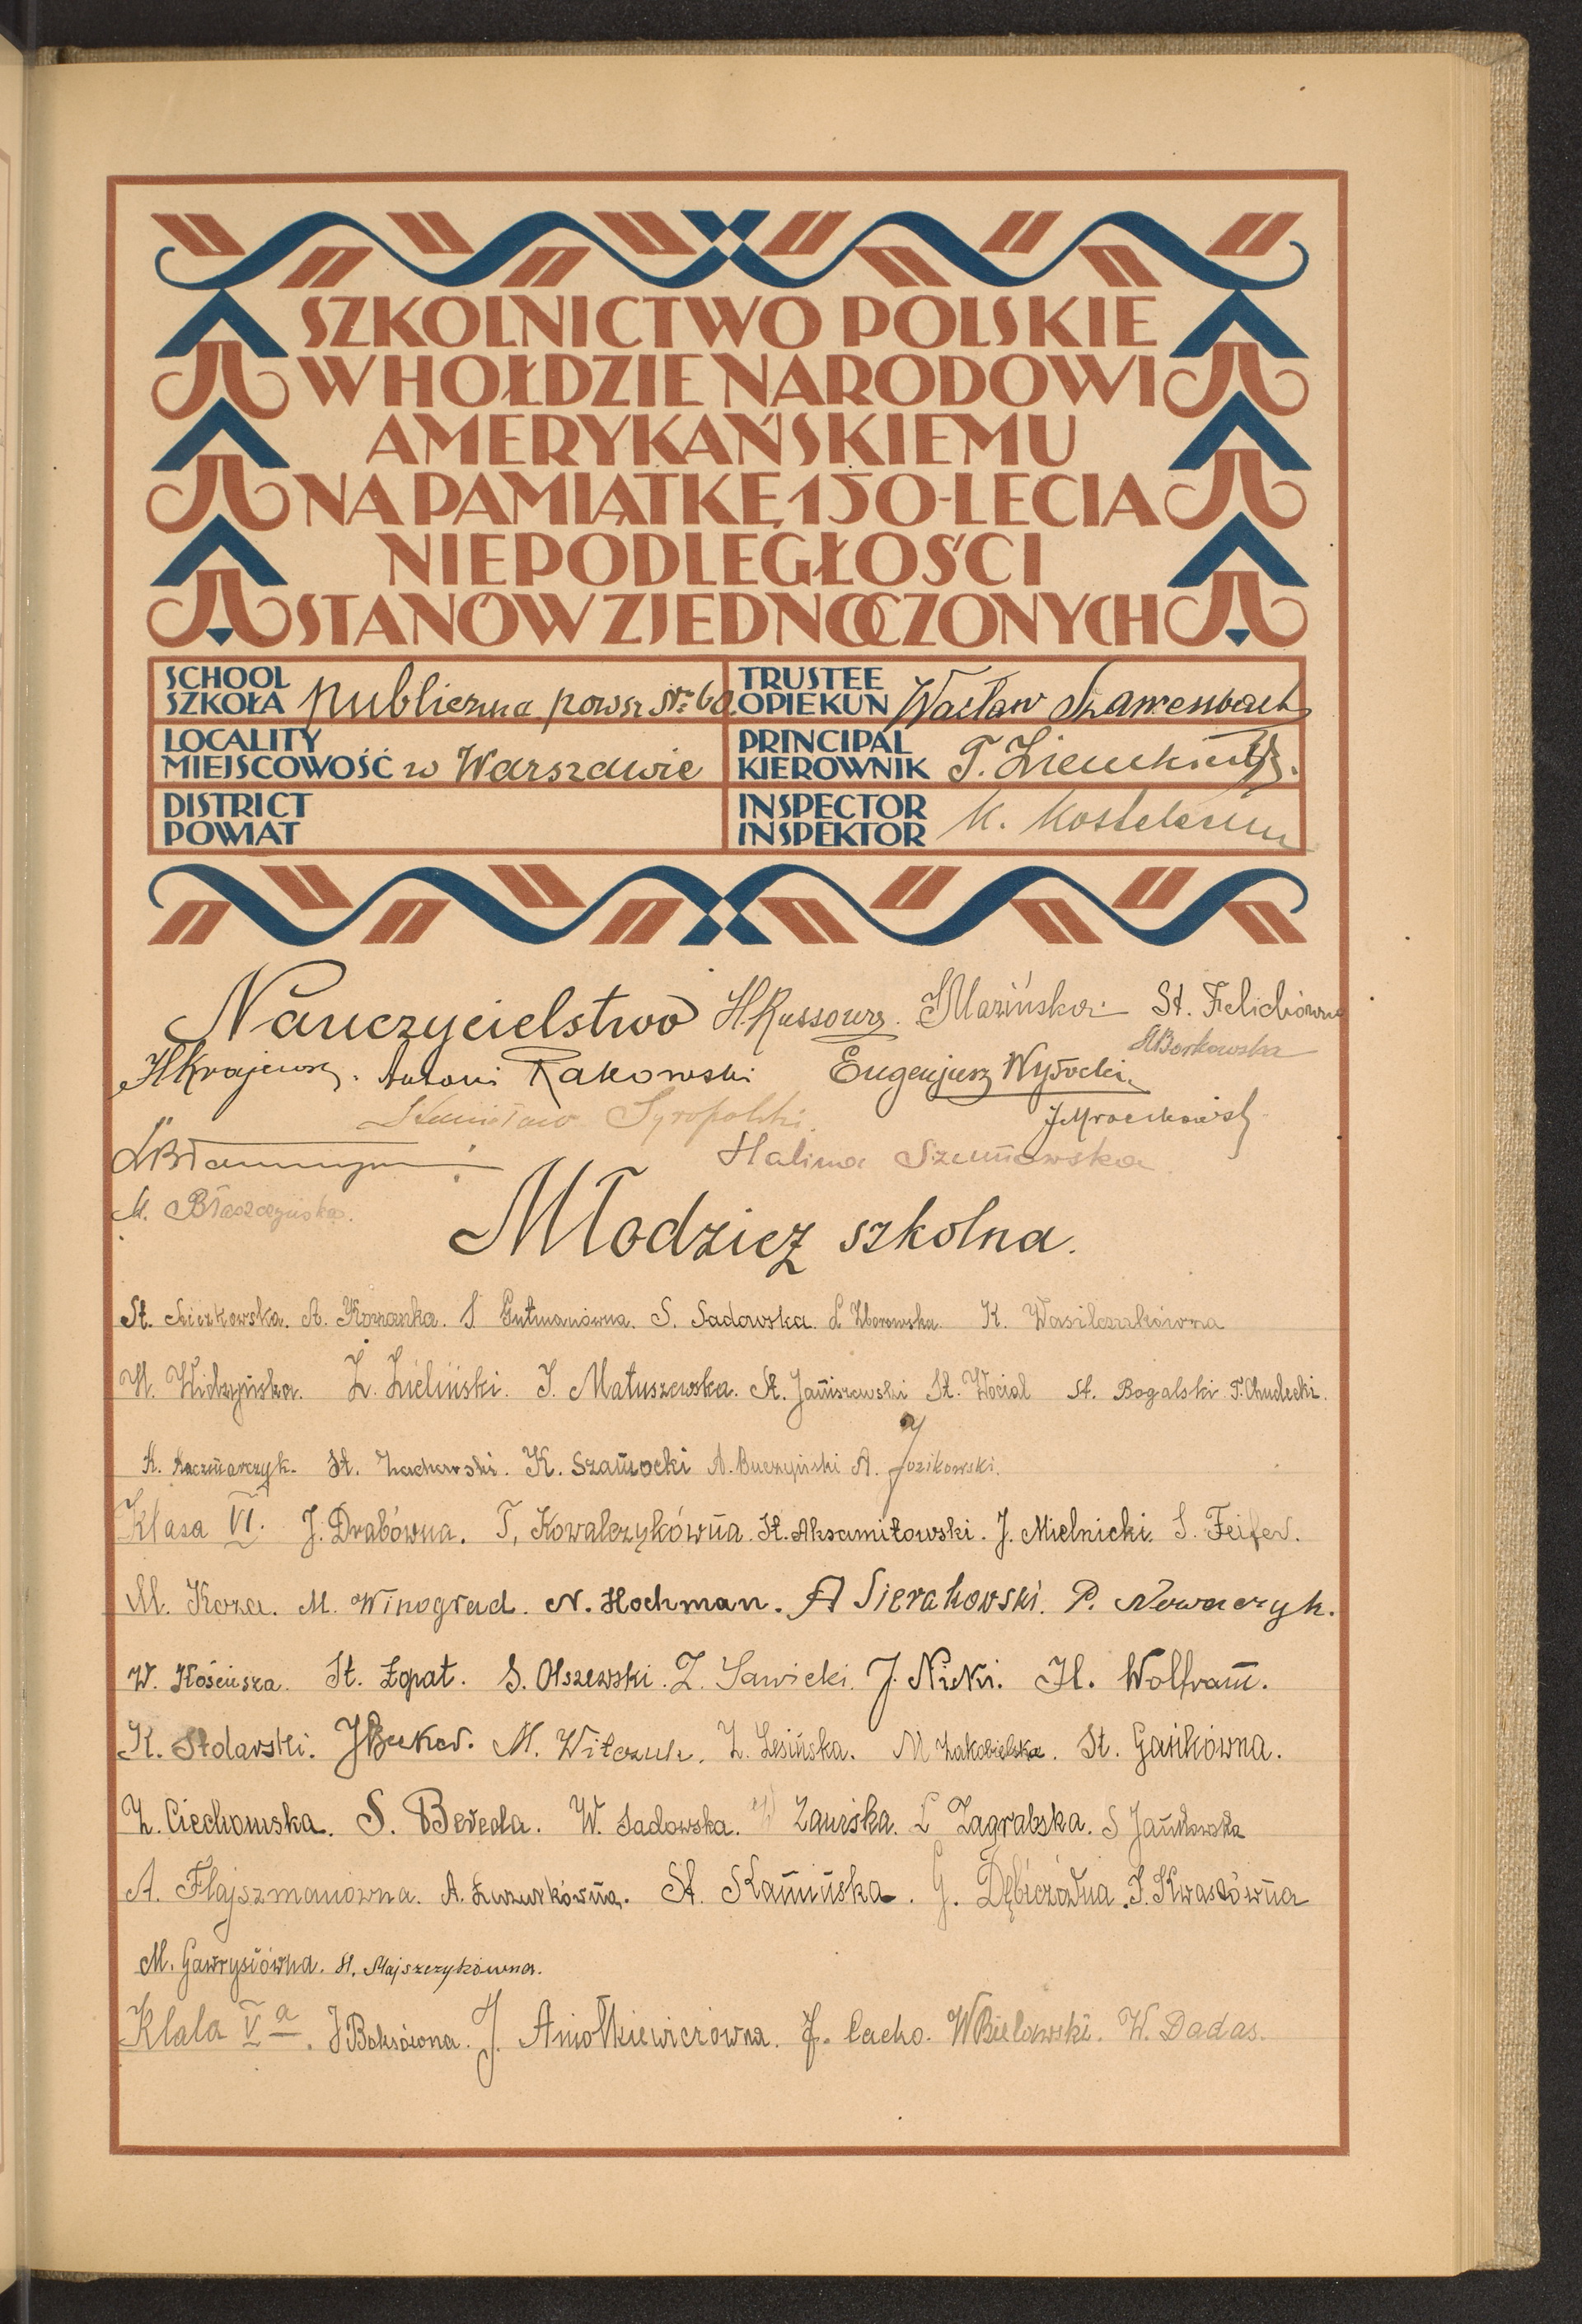 SZKOLNICTWO POLSKIE
W HOŁDZIE NARODOWI
AMERYKAŃSKIEMU
NA PAMIĄTKĘ 150-LECIA
NIEPODLEGŁOŚCI
STANÓW ZJEDNOCZONYCH
SCHOOL
SZKOŁA publiczna powsz № 60
TRUSTEE
OPIEKUN Wacław
LOCALITY
MIEJSCOWOŚĆ w Warszawie
PRINCIPAL
KIEROWNIK T.
DISTRICT
POWIAT
INSPECTOR
INSPEKTOR K.
Nauczycielstwo H. Russowa. St. Felichówna
H. Borkowska
H Krajews. Antoni Rakowski Eugenjusz Wysocki.
Stanisław Syropolski.
Halina Szumowska.
M. Błaszczyńska.
Młodzież szkolna.
St. A. Kozranka. S Gutmanówna. S. Sadowska. L Zborowska. K. Wasilczukówna
H. Widzyńska. Z. Zieliński. J. Matuszewska. St. Janiszewski St. Wociál St. Bogalski T. Chudecki.
H. Kaczmarczyk. St. Zachowski. K. Szamocki A. Buczyński A. Jozikowski.
Klasa VI. J. Drabówna. T, Kowalczykówna. St. Aksamitowski. J. Mielnicki. S. Feifer.
M. Koza. M. Winograd. N. Hochman. A Sierakowski. P. Nowaczyk.
W. Kościusza. St. Łopat. S. Olszewski. Z. Sawicki. J. Nicki. H. Wolfram.
K. Stolarski. J Buker. M. Witczuk. Z. Lesińska. M Zakobielska. St. Gańkówna.
Z. Ciechomska. S. Bereda. W. Sadowska. W Zawiska. L Zagrabska. S Jankowska
A. Flajszmanówna. A. St. Kamińska. G. Dębiczówna. J. Kwasówna
M. Gawrysiówna. H. Majszczykówna.
Klasa Va. J Boksówna. J. Aniołkiewiczówna. J. Cacho. W Bielawski. W. Dadas.